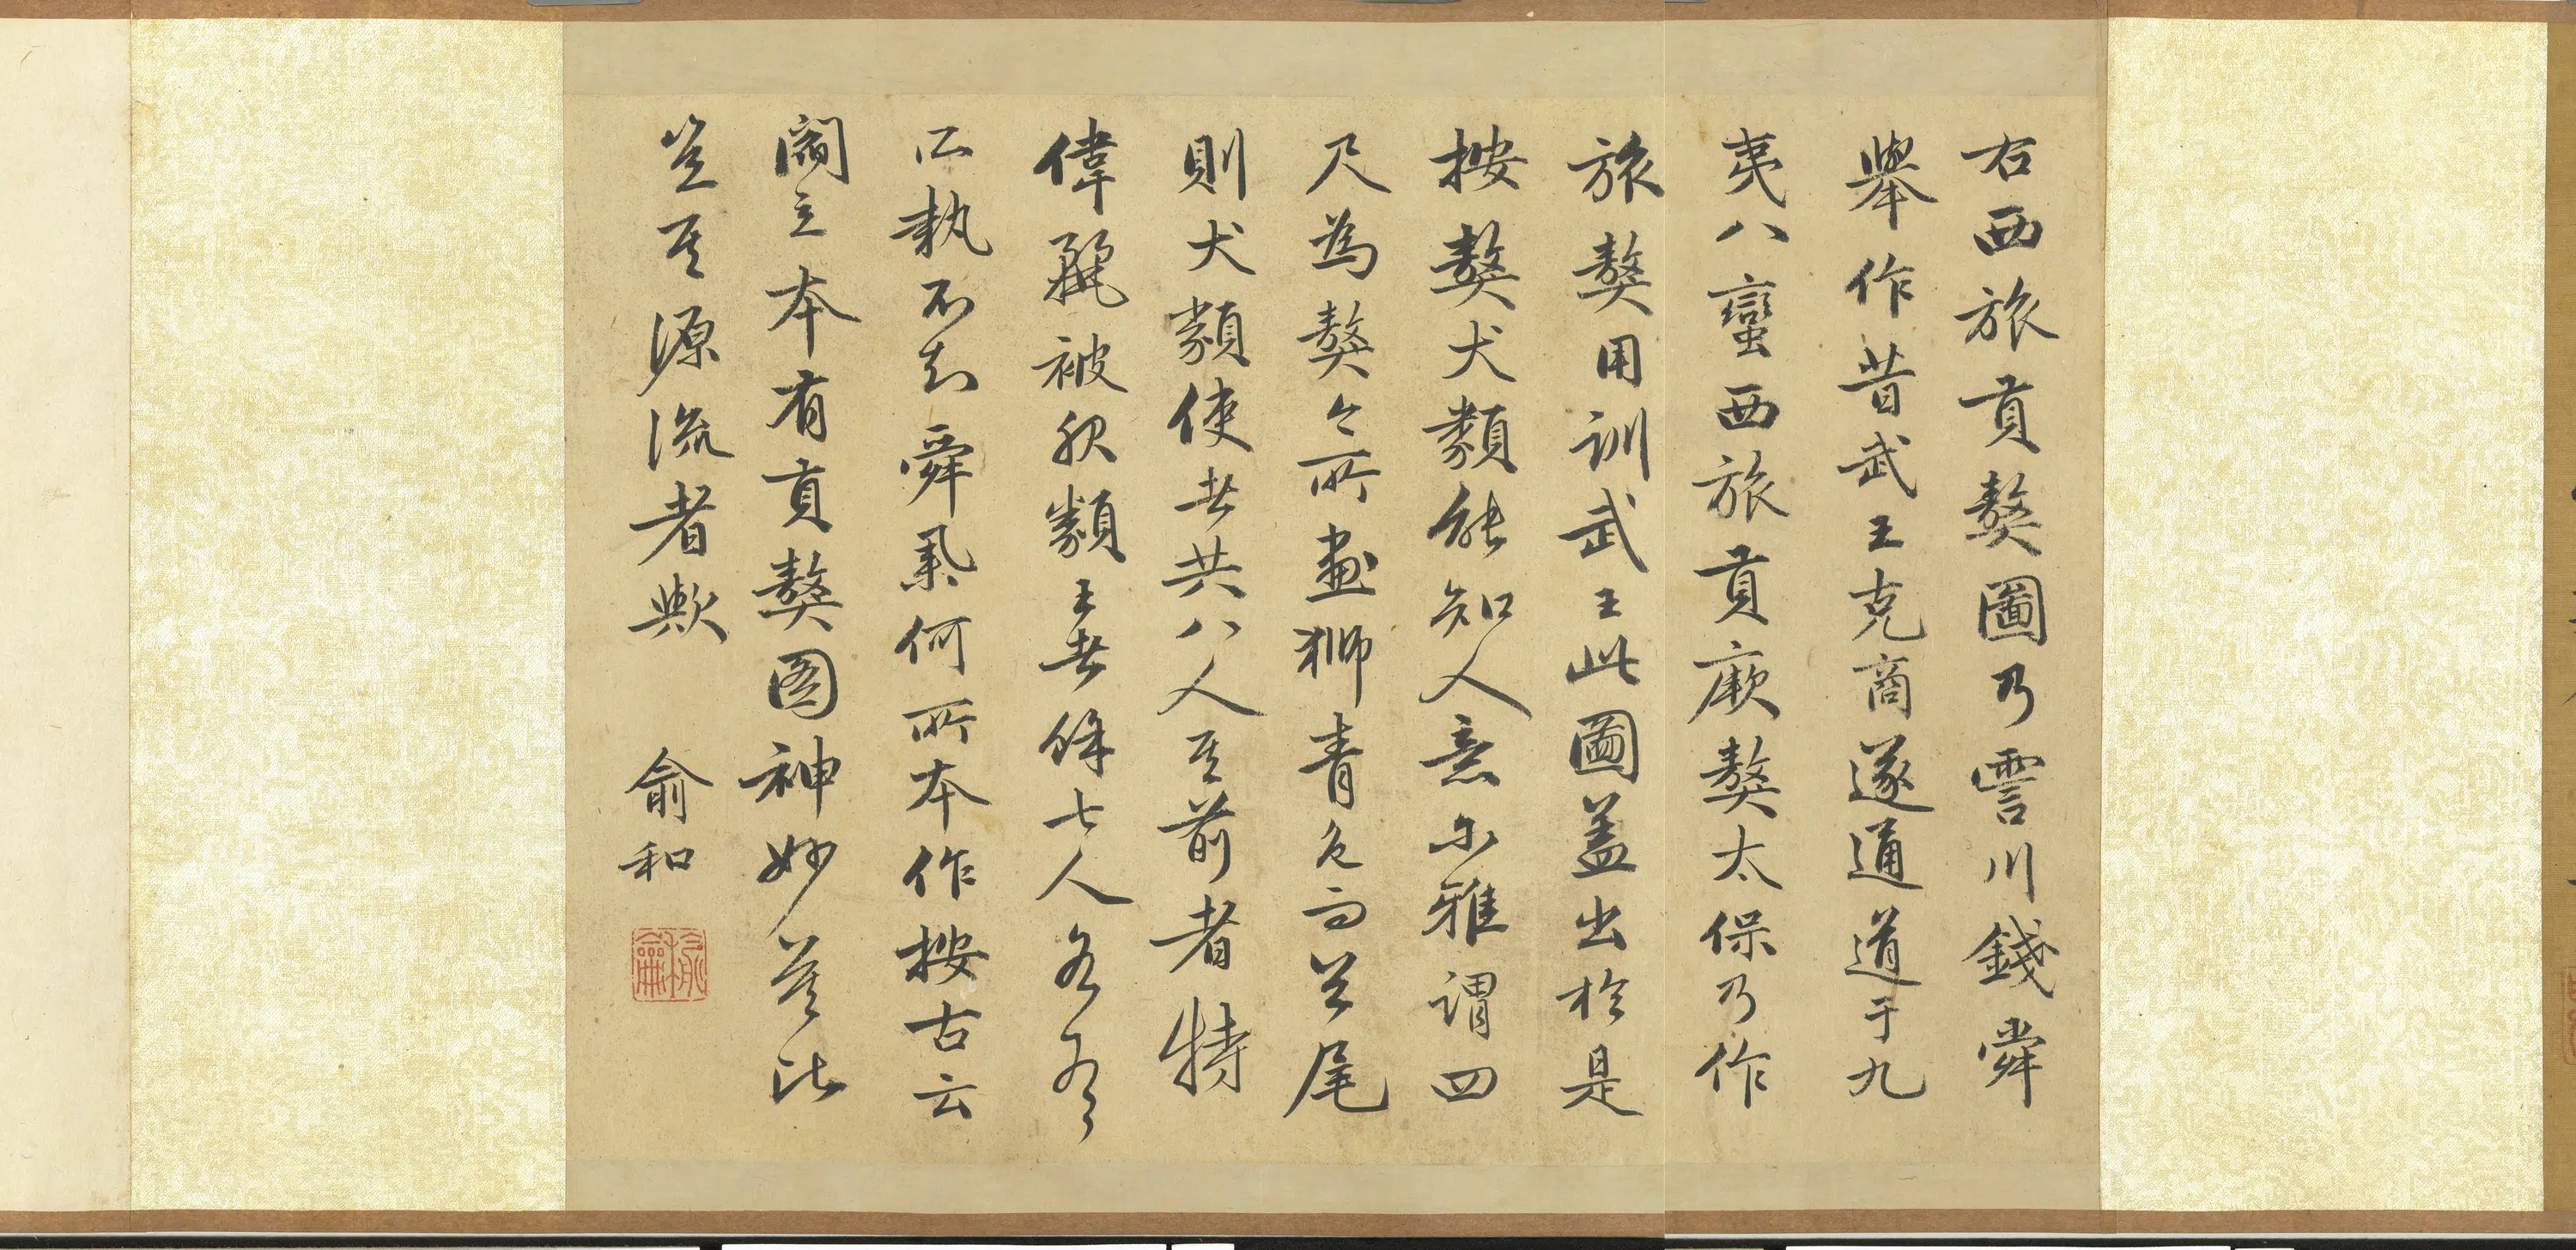 右西旅貢獒圖乃霅川錢舜
舉作昔武王克商遂通道于九
夷八蠻西旅貢厥獒太保乃作
旅獒用訓武王此圖蓋出於是
按獒犬類能知人意尓雅謂四
尺為獒今所畫獅青色而長尾
則犬類使者共八人其前者特
偉麗被服類王者餘七人各有
所執不知舜舉何所本作按古云
閻立本有貢獒圖神妙莫比
豈其源流者歟 俞和